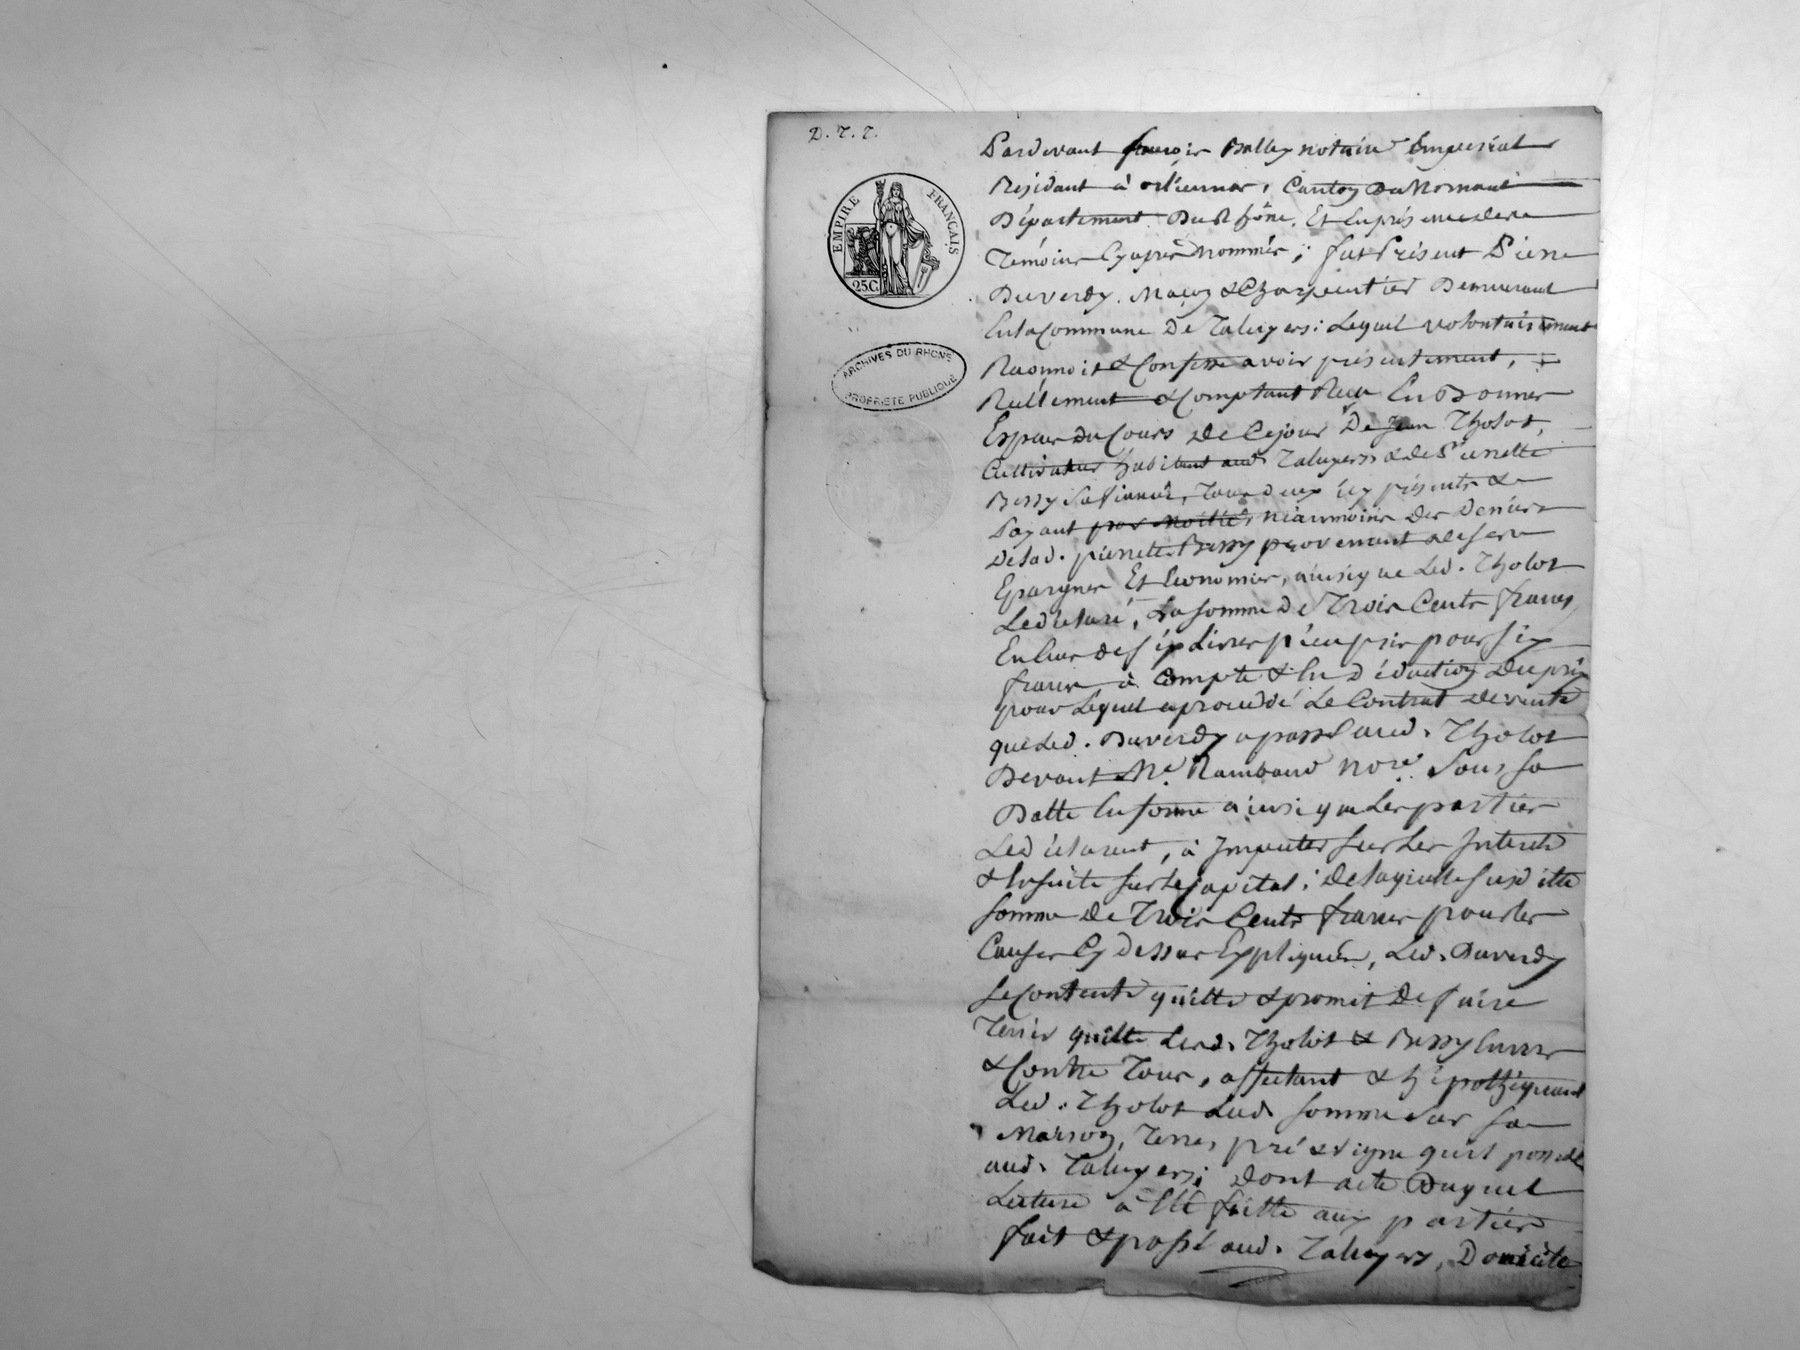 D. T. T.
EMPIRE FRANÇAIS
25C.
ARCHIVES DU RHONE
PROPRIETE PUBLIQUE
Pardevant françois Balley notaire Imperial
Résidant à orliennas, Canton De Mornant
Département Du Rhône, Et En présence des
Témoins Cy après nommés ; fut Présent Pierre
Duverdy, Maçon & Charpentier Demeurant
En la Commune De Taluyers : Lequel volontairement
Reconnoit & Confesse avoir présentement,
Réellement & Comptant Reçu En Bonnes
Espèces du Cours De Ce jour De Jean Tholot,
Cultivateur habitant aud. Taluyers & de Pierrette
Bessy Sa fiancée, Tous deux icy présents &
Payant par Moitié, néanmoins des Deniers
De lad. pierrette Bessy provenant de ses
Epargnes Et Economies, ainsi que Led. Tholot
Le déclaré, La somme De Trois Cents francs
En Ecus de six Livres pièce pris pour six
francs à Compte & En déduction Du prix
pour Lequel a procédé Le Contrat de vente
que Led. Duverdy a passé aud. Tholot
Devant Me. Rambaud Nore. Sous sa
Datte En forme ainsi que Les parties
Le déclarent, à Imputer sur Les Interets
& Ensuite sur Le Capital ; De laquelle susditte
somme De Trois Cents francs pour Les
Causes Cy Dessus Expliquées, Led. Duverdy
Se Contente quitte & promet De faire
Tenir quitte Lesd. Tholot & Bessy Envers
& Contre Tous, affectant & hipothéquant
Led. Tholot Lad. somme Sur Sa
Maison, Terres, pré & vigne qu'il possede
aud. Taluyers ; Dont acte Duquel
Lecture a Eté faitte aux parties
fait & passé aud. Taluyers, Domicile